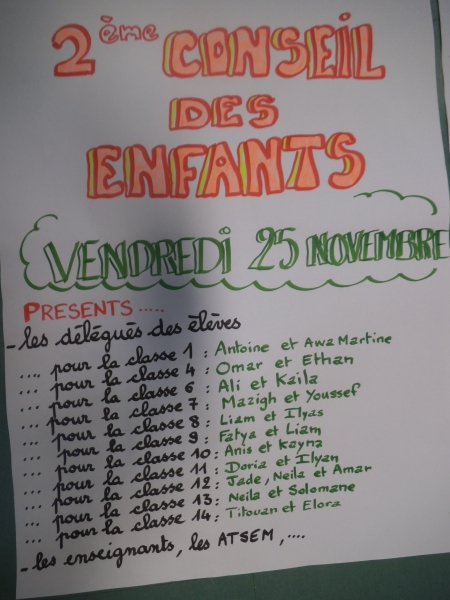 2ème CONSEIL
DES
ENFANTS
VENDREDI 25 NOVEMBRE
PRESENTS .....
- les délégués des élèves
.... pour la classe 1 : Antoine et Awa Martine
... pour la classe 4 : Omar et Ethan
... pour la classe 6 : Ali et Kaïla
... pour la classe 7 : Mazigh et Youssef
... pour la classe 8 : Liam et Ilyas
... pour la classe 9 : Fatya et Liam
... pour la classe 10 : Anis et Kayna
... pour la classe 11 : Doria et Ilyan
... pour la classe 12 : Jade, Neila et Amar
... pour la classe 13 : Neila et Solomane
... pour la classe 14 : Titouan et Elora
- les enseignants, les ATSEM, ....